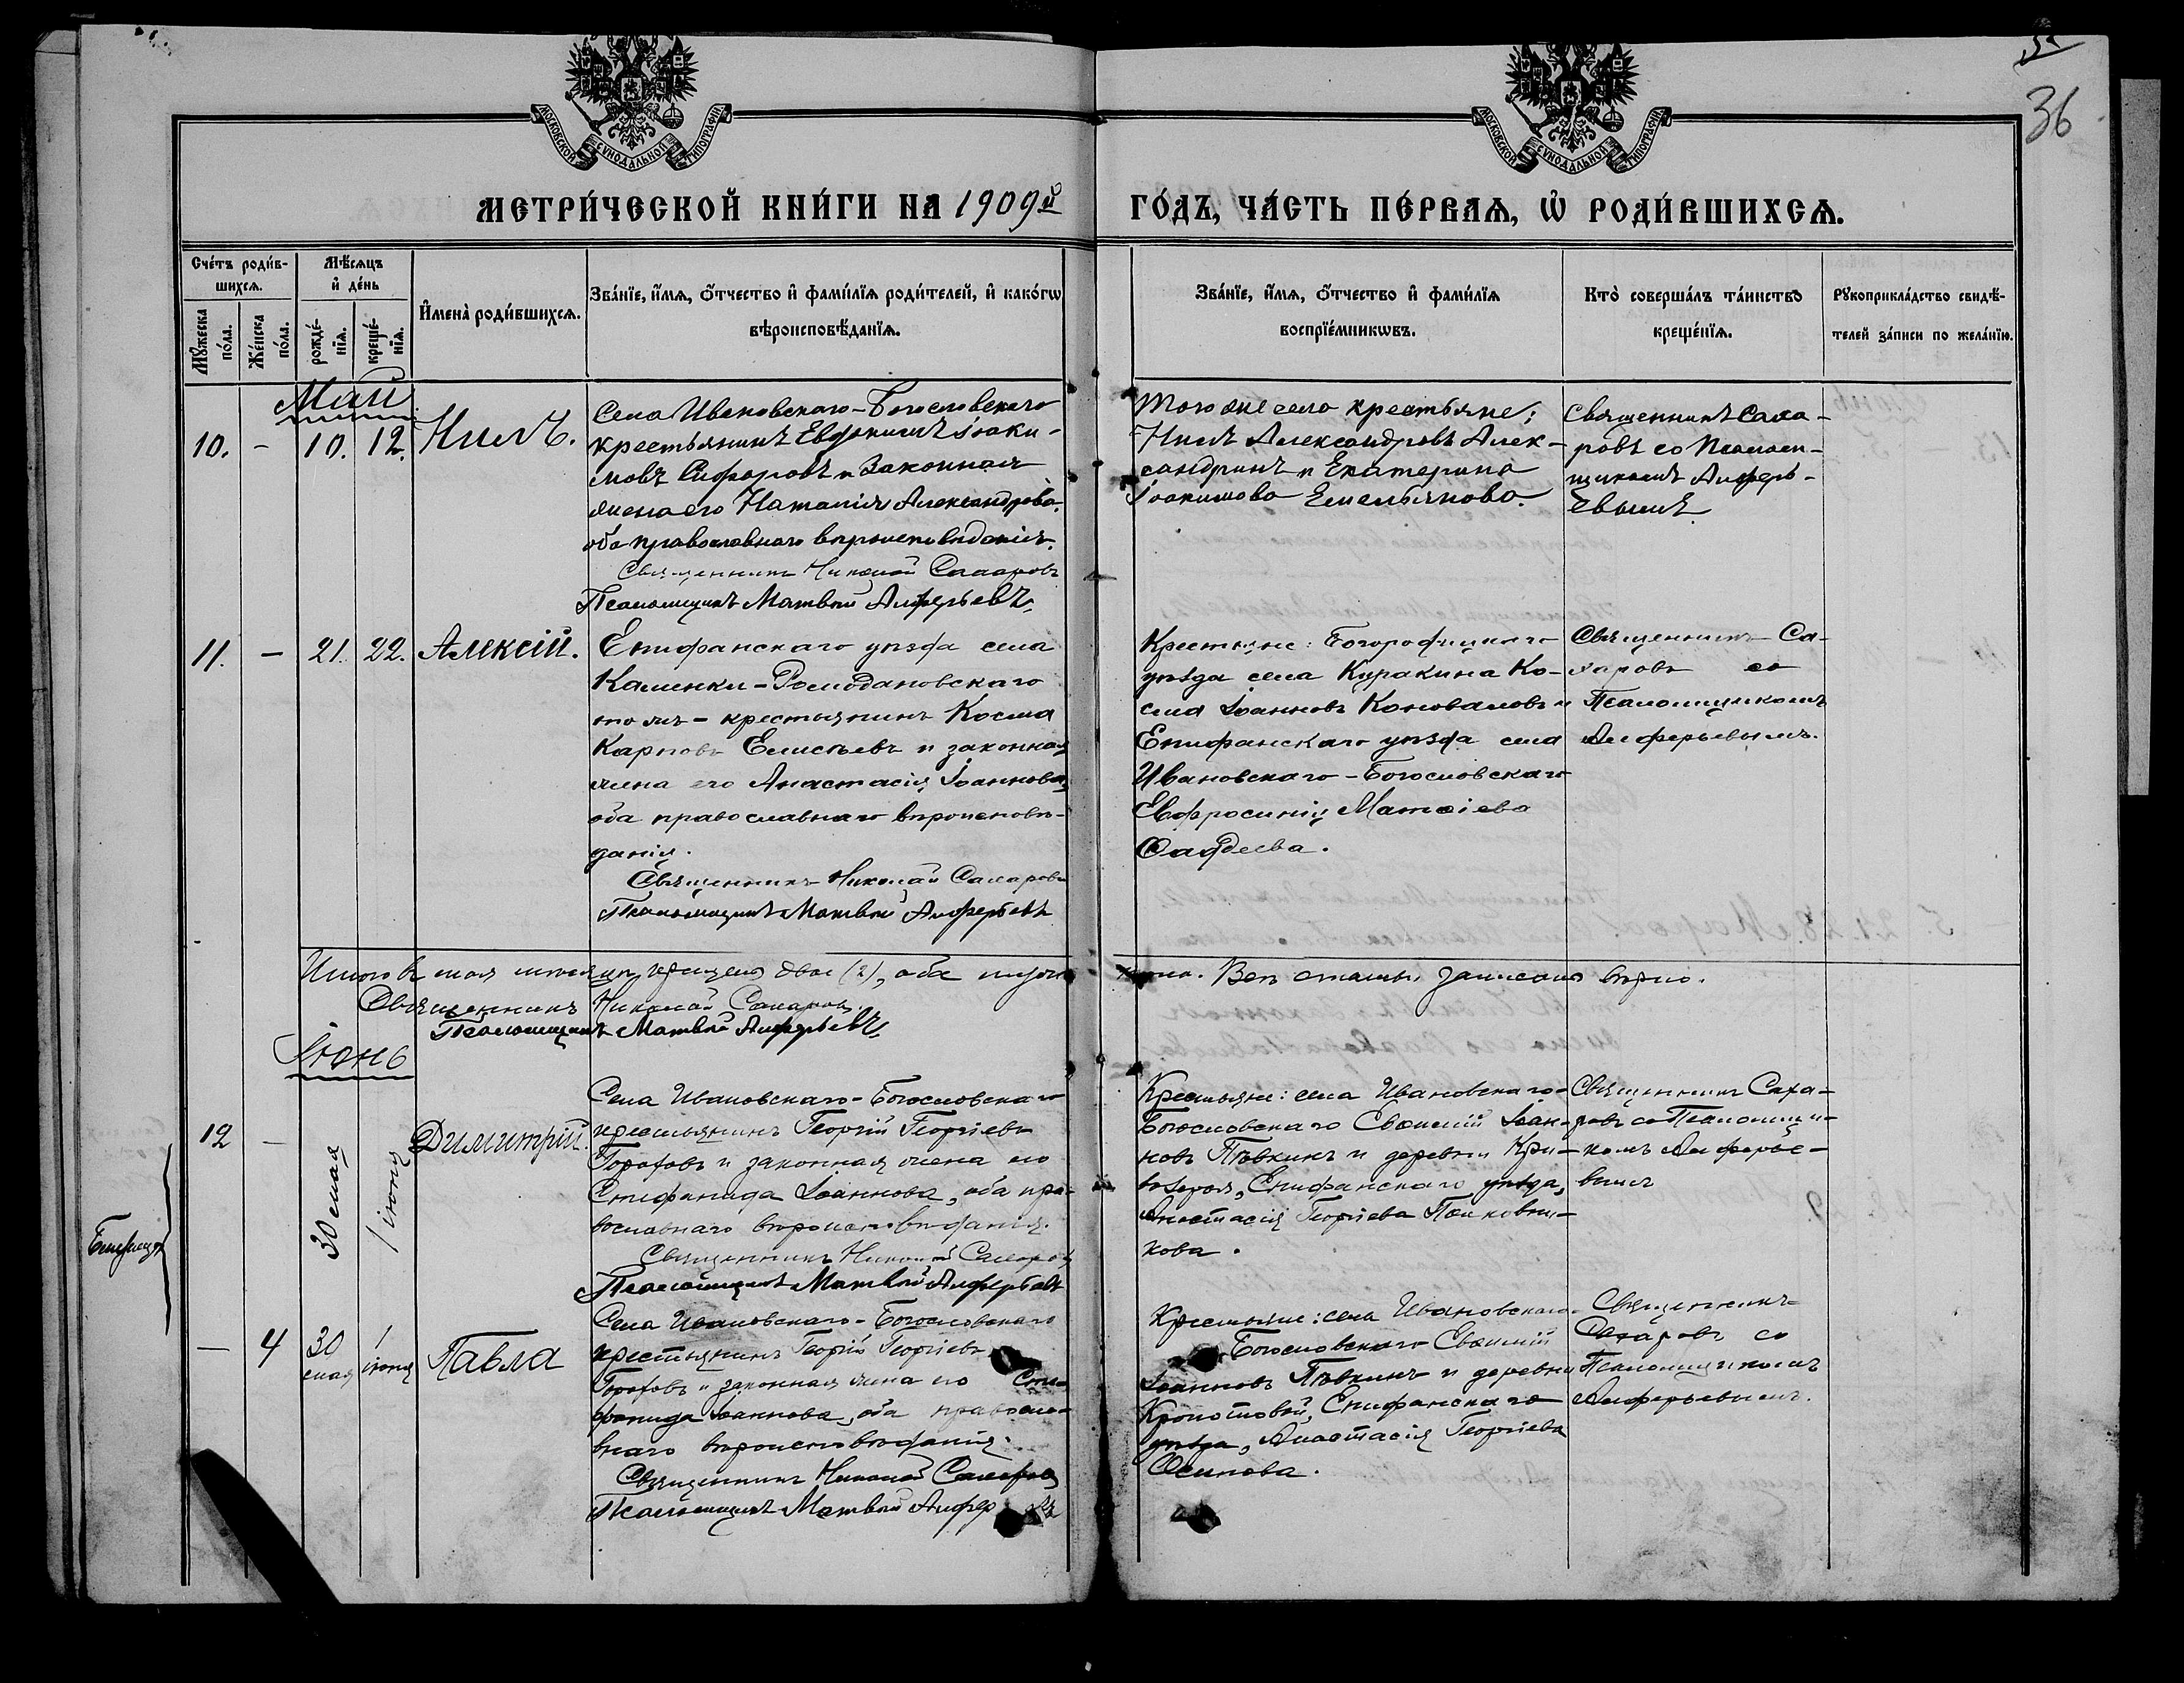 36
МОСКОВСКОЙ СУНОДАЛЬНОЙ ТИПОГРАФІИ
МОСКОВСКОЙ СУНОДАЛЬНОЙ ТИПОГРАФІИ
МЕТРИ́ЧЕСКОЙ КНИ́ГИ НА 1909й ГО́ДЪ, ЧА́СТЬ ПЕ́РВАѦ, Ѡ РОДИ́ВШИХСѦ.
Сче́тъ роди́в-
шихсѧ.
Мꙋ́жеска по́ла.
Же́нска по́ла.
Мѣ́сѧцъ
и҆ де́нь
рожде́-
нїѧ.
креще́-
нїѧ.
И҆мена̀ роди́вшихсѧ.
Зва́нїе, и҆́мѧ, ѻ҆́тчество и҆ фами́лїѧ роди́телей, и҆ како́гѡ
вѣроисповѣ́данїѧ.
Зва́нїе, и҆́мѧ, ѻ҆́тчество и҆ фами́лїѧ
воспрїе́мникѡвъ.
Кто̀ соверша́лъ та́инство
креще́нїѧ.
Рꙋкоприкла́дство свидѣ́-
телей за́писи по жела́нїю.
Май
10. - 10. 12. Нилъ.
Села Ивановскаго-Богословскаго
крестьянинъ Евфимій Іоаки-
мовъ и законная
жена его Наталія Александрова,
оба православнаго вѣроисповѣданія.
Священникъ Николай Сахаровъ
Псаломщикъ Матвѣй Алферьевъ.
Того же села крестьяне:
Нилъ Александровъ Алек-
сандринъ и Екатерина
Іоакимова Емельянова.
Священникъ Саха-
ровъ со Псалом-
щикомъ Алферь-
евымъ.
11. - 21. 22. Алексій.
Епифанскаго уѣзда села
Каменки-
тожъ - крестьянинъ Косма
Карповъ Елисѣевъ и законная
жена его Анастасія Іоаннова,
оба православнаго вѣроисповѣ-
данія.
Священникъ Николай Сахаровъ
Псаломщикъ Матвѣй Алферьевъ
Крестьяне: Богородицкаго
уѣзда села Куракина Ко-
сма Іоанновъ Коноваловъ и
Епифанскаго уѣзда села
Ивановскаго-Богословскаго
Евфросинія Матѳіева
Ѳаддеева.
Священникъ Са-
харовъ со
Псаломщикомъ
Алферьевымъ.
Итого въ маѣ мѣсяцѣ крещено двое (2), оба мужескаго пола. Всѣ статьи записаны вѣрно.
Священникъ Николай Сахаровъ
Псаломщикъ Матвѣй Алферьевъ.
Іюнь
Близнецы
12 - 30 мая 1 іюня Димитрій.
Села Ивановскаго-Богословскаго
крестьянинъ Георгій Георгіевъ
Гороховъ и законная жена его
Епифанида Іоаннова, оба пра-
вославнаго вѣроисповѣданія.
Священникъ Николай Сахаровъ
Псаломщикъ Матвѣй Алферьевъ
Крестьяне: села Ивановскаго-
Богословскаго Евѳимій Іоан-
новъ Пѣвкинъ и деревни Кри-
Епифанскаго уѣзда,
Анастасія Георгіева
кова.
Священникъ Саха-
ровъ со Псаломщи-
комъ Алферье-
вымъ
- 4 30 мая 1 іюня Павла
Села Ивановскаго-Богословскаго
крестьянинъ Георгій Георгіевъ
Гороховъ и законная жена его Епи-
фанида Іоаннова, оба правосла-
внаго вѣроисповѣданія.
Священникъ Николай Сахаровъ
Псаломщикъ Матвѣй Алфер въ
Крестьяне: села Ивановскаго-
Богословскаго Евѳимій
Іоанновъ Пѣвкинъ и деревни
Кропотовой, Епифанскаго
уѣзда, Анастасія Георгіева
Осипова.
Священникъ
Сахаровъ со
Псаломщикомъ
Алферьевымъ.